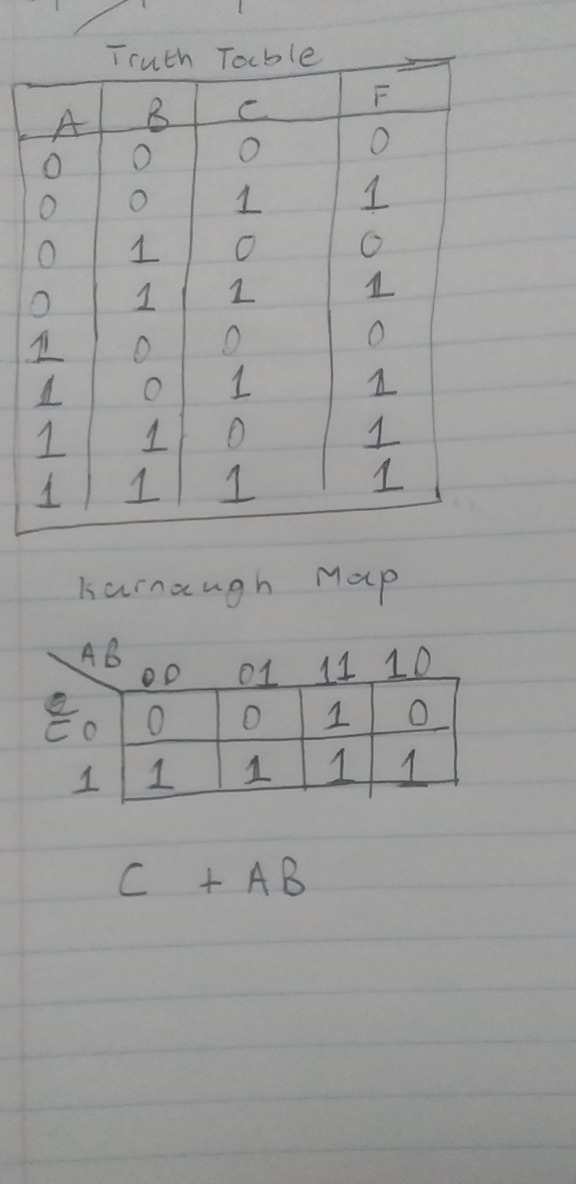 Truth Table
A B C F
0 0 0 0
0 0 1 1
0 1 0 0
0 1 1 1
1 0 0 0
1 0 1 1
1 1 0 1
1 1 1 1
Karnaugh Map
AB 00 01 11 10
C 0 0 0 1 0
1 1 1 1 1
C + AB